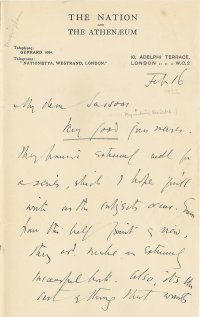 THE NATION
AND
THE ATHENÆUM
Telephone:
GERRARD
Telegrams:
"NATIONETTA, WESTRAND, LONDON."
10, ADELPHI TERRACE,
LONDON W.C.2
Feb 16
My dear Sassoon
Very good
They extremely well for
a series, which I hope you'll
write as the subjects occur. Even
from the half point of view,
they wd. make an extremely
successful book. Also, it's the
sort of thing that wants